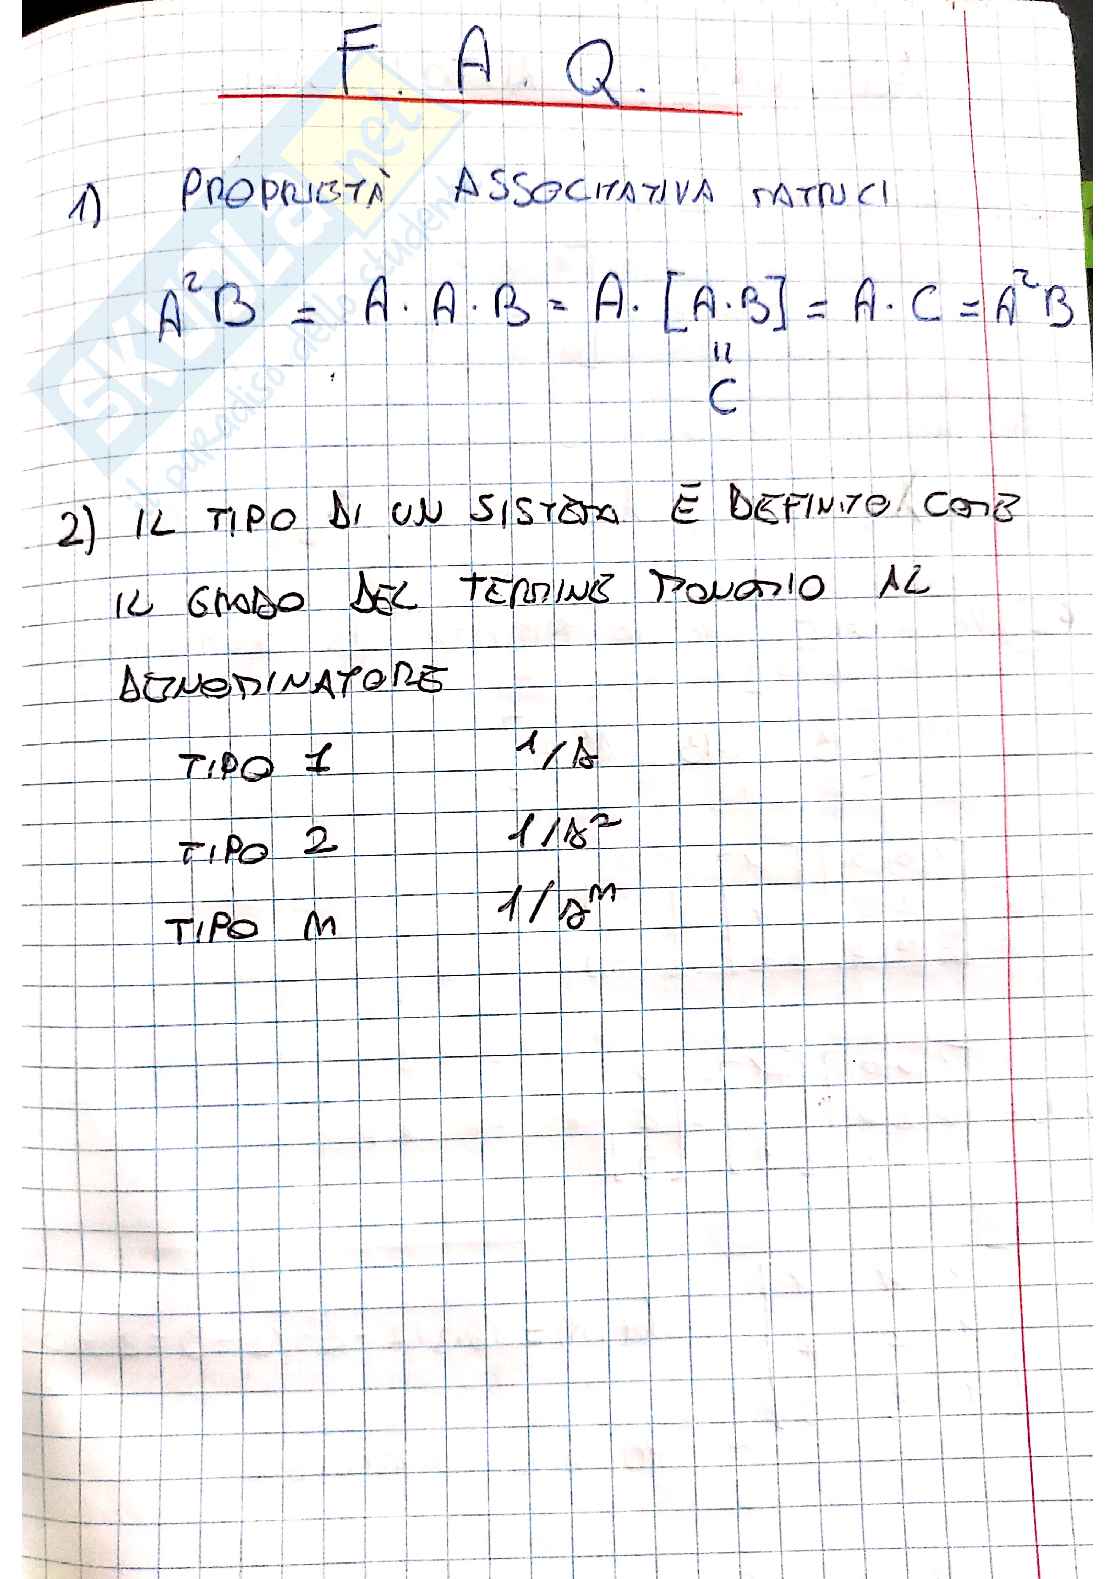 F. A. Q.
1) PROPRIETÀ ASSOCIATIVA MATRICI
A²B = A · A · B = A · [A·B] = A · C = A²B
"
C
2) IL TIPO DI UN SISTEMA È DEFINITO COME
IL GRADO DEL TERMINE MONOMIO AL
DENOMINATORE
TIPO 1 1/s
TIPO 2 1/s²
TIPO M 1/s^M
SKUOLA.net
il paradiso dello studente